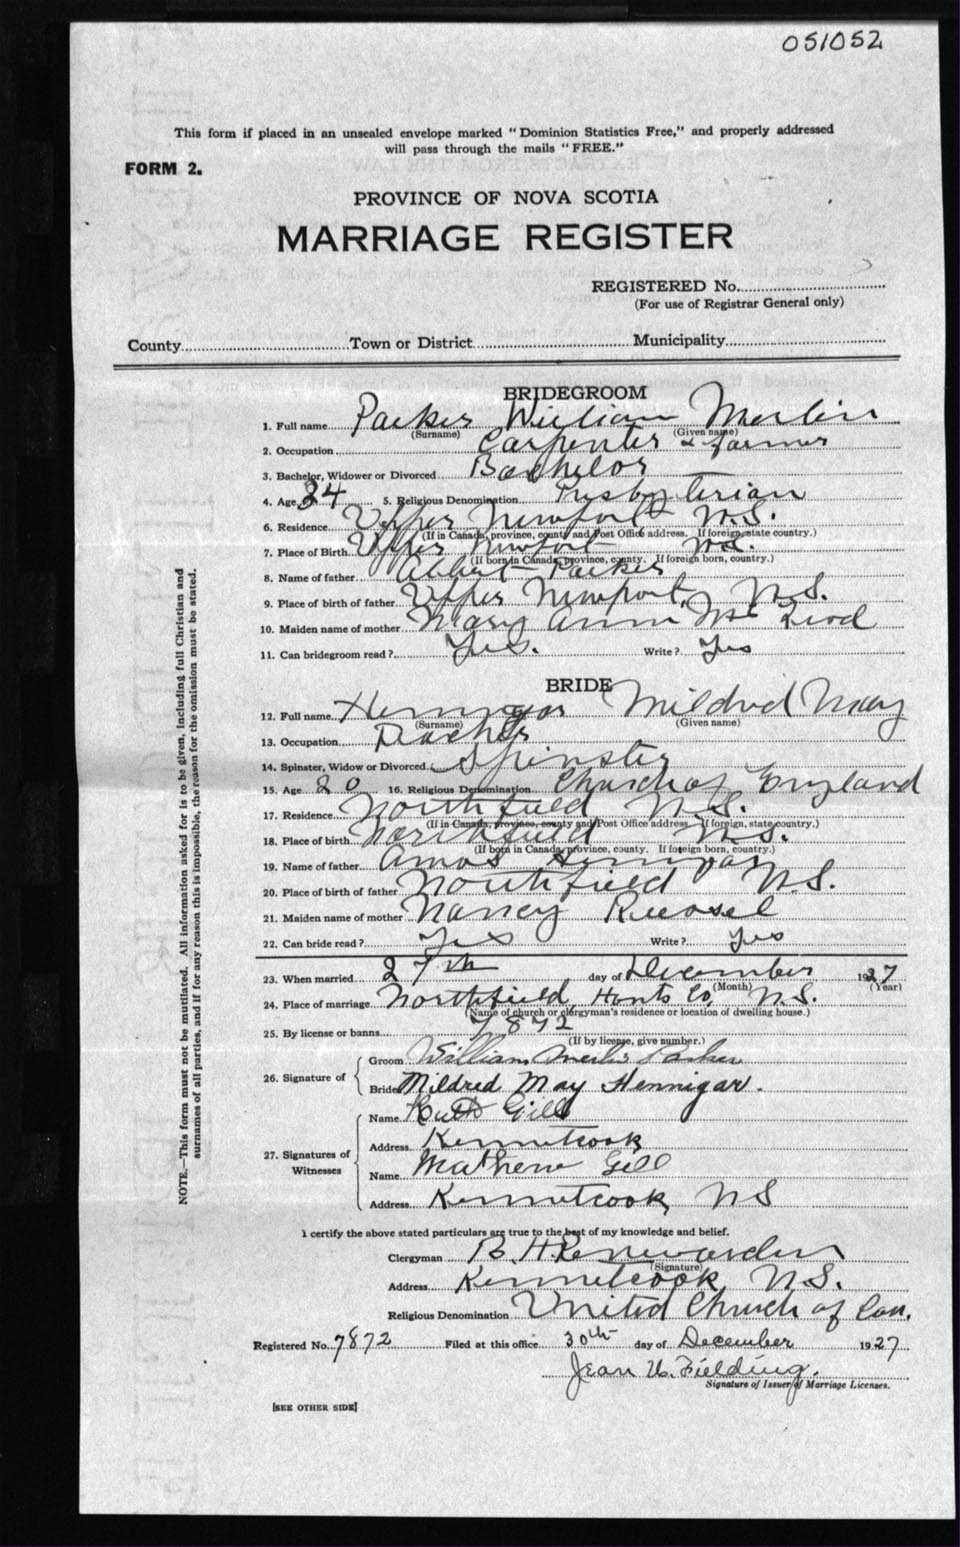 051052
This form if placed in an unsealed envelope marked "Dominion Statistics Free," and properly addressed
will pass through the mails "FREE."
FORM 2.
PROVINCE OF NOVA SCOTIA
MARRIAGE REGISTER
REGISTERED No.
(For use of Registrar General only)
County Town or District Municipality
BRIDEGROOM
1. Full name Parker William Merlin
(Surname) (Given name)
2. Occupation Carpenter & farmer
3. Bachelor, Widower or Divorced Bachelor
4. Age 34 5. Religious Denomination Presbyterian
6. Residence Upper Newport N.S.
(If in Canada, province, county and Post Office address. If foreign, state country.)
7. Place of Birth Upper Newport N.S.
(If born in Canada, province, county. If foreign born, country.)
8. Name of father Albert Parker
9. Place of birth of father Upper Newport, N.S.
10. Maiden name of mother Mary Ann
11. Can bridegroom read? Yes. Write? Yes
BRIDE
12. Full name Hennigar Mildred May
(Surname) (Given name)
13. Occupation Teacher
14. Spinster, Widow or Divorced Spinster
15. Age 20 16. Religious Denomination Church of England
17. Residence Northfield N.S.
(If in Canada, province, county and Post Office address. If foreign, state country.)
18. Place of birth Northfield N.S.
(If born in Canada, province, county. If foreign born, country.)
19. Name of father Amos Hennigar
20. Place of birth of father Northfield N.S.
21. Maiden name of mother Nancy
22. Can bride read? Yes Write? Yes
23. When married 27th day of December 1927
(Month) (Year)
24. Place of marriage Northfield, Hants Co, N.S.
(Name of church or clergyman's residence or location of dwelling house.)
25. By license or banns 7872
(If by license, give number.)
26. Signature of
Groom William Merlin Parker
Bride Mildred May Hennigar.
27. Signatures of Witnesses
Name Ruth Gill
Address Kennetcook
Name Gill
Address Kennetcook, NS
I certify the above stated particulars are true to the best of my knowledge and belief.
Clergyman B. H.
(Signature)
Address Kennetcook, N.S.
Religious Denomination United Church of Can.
Registered No. 7872 Filed at this office 30th day of December 1927
Jean U. Fielding.
Signature of Issuer of Marriage Licenses.
[SEE OTHER SIDE]
NOTE.—This form must not be mutilated. All information asked for is to be given, including full Christian and
surnames of all parties, and if for any reason this is impossible, the reason for the omission must be stated.